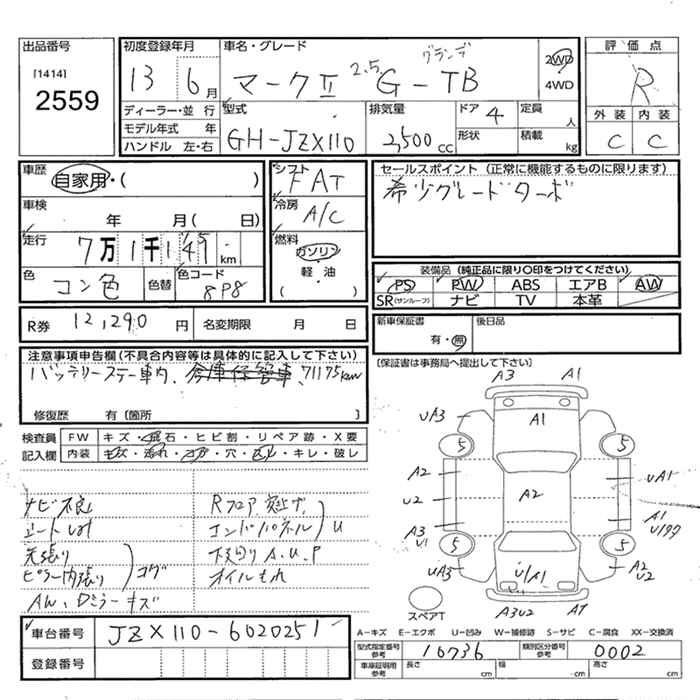 出品番号
[1414]
2559
初度登録年月
13 6月
車名・グレード
グランデ
マークⅡ 2.5 G-TB
2WD
4WD
評価点
R
外装 内装
C C
ディーラー・並行
モデル年式 年
ハンドル 左・右
型式
GH-JZX110
排気量
2,500cc
ドア 4
形状
定員 人
積載 kg
車歴
自家用・( )
車検
年 月( 日)
走行
7万1千1 km
色
コン色
色替
色コード
8P8
シフト
FAT
冷房
A/C
燃料
ガソリン
軽・油
( )
セールスポイント (正常に機能するものに限ります)
希少グレードターボ
装備品 (純正品に限り○印をつけてください)
PS PW ABS エアB AW
SR(サンルーフ) ナビ TV 本革
R券 12,290円
名変期限 月 日
新車保証書
有・無
後日品
[保証書は事務局へ提出して下さい]
注意事項申告欄(不具合内容等は具体的に記入して下さい)
バッテリーステー車内、倉庫保管車、71175km
修復歴 有〔箇所 〕
検査員
記入欄
FW キズ・飛石・ヒビ割・リペア跡・X要
内装 キズ・汚れ・コゲ・穴・・キレ・破レ
ナビ不良
シートしみ
天張り
ピラー内張り コゲ
AW、Dミラーキズ
Rフロア突上げ
エンドパネル U
下廻りA.U.P
オイルもれ
A3 A1
UA3 A1
5 5
A2 UA1
U2 A2
A3 A1
U1
5 5
UA3 U/A1 A2
U2
スペアT A3U2 A7
車台番号 JZX110-6020251
登録番号
A-キズ E-エクボ U-凹み W-補修跡 S-サビ C-腐食 XX-交換済
型式指定番号
参考
10736
類別区分番号
参考
0002
車庫証明用
参考
長さ -cm 幅 -cm 高さ -cm